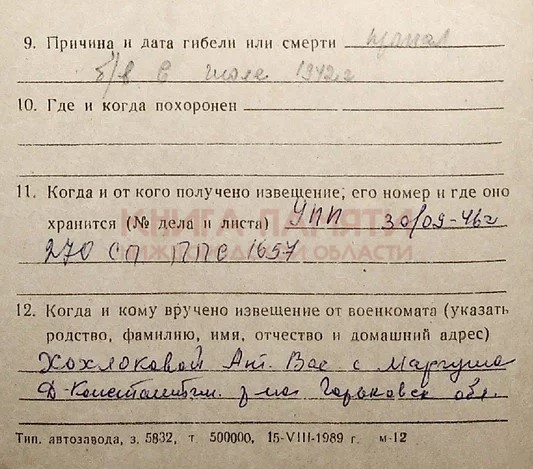 9. Причина и дата гибели или смерти пропал
б/в в июле 1942 г
10. Где и когда похоронен
11. Когда и от кого получено извещение, его номер и где оно
хранится (№ дела и листа) УПП 30/09-46г
КНИГА ПАМЯТИ
НИЖЕГОРОДСКОЙ ОБЛАСТИ
270 СП ППС 1657
12. Когда и кому вручено извещение от военкомата (указать
родство, фамилию, имя, отчество и домашний адрес)
Хохлоковой Ант. Вас с Маргуша
Д-Константин. р-на Горьковск обл.
Тип. автозавода, з. 5832, т. 500000, 15-VIII-1989 г. м-12